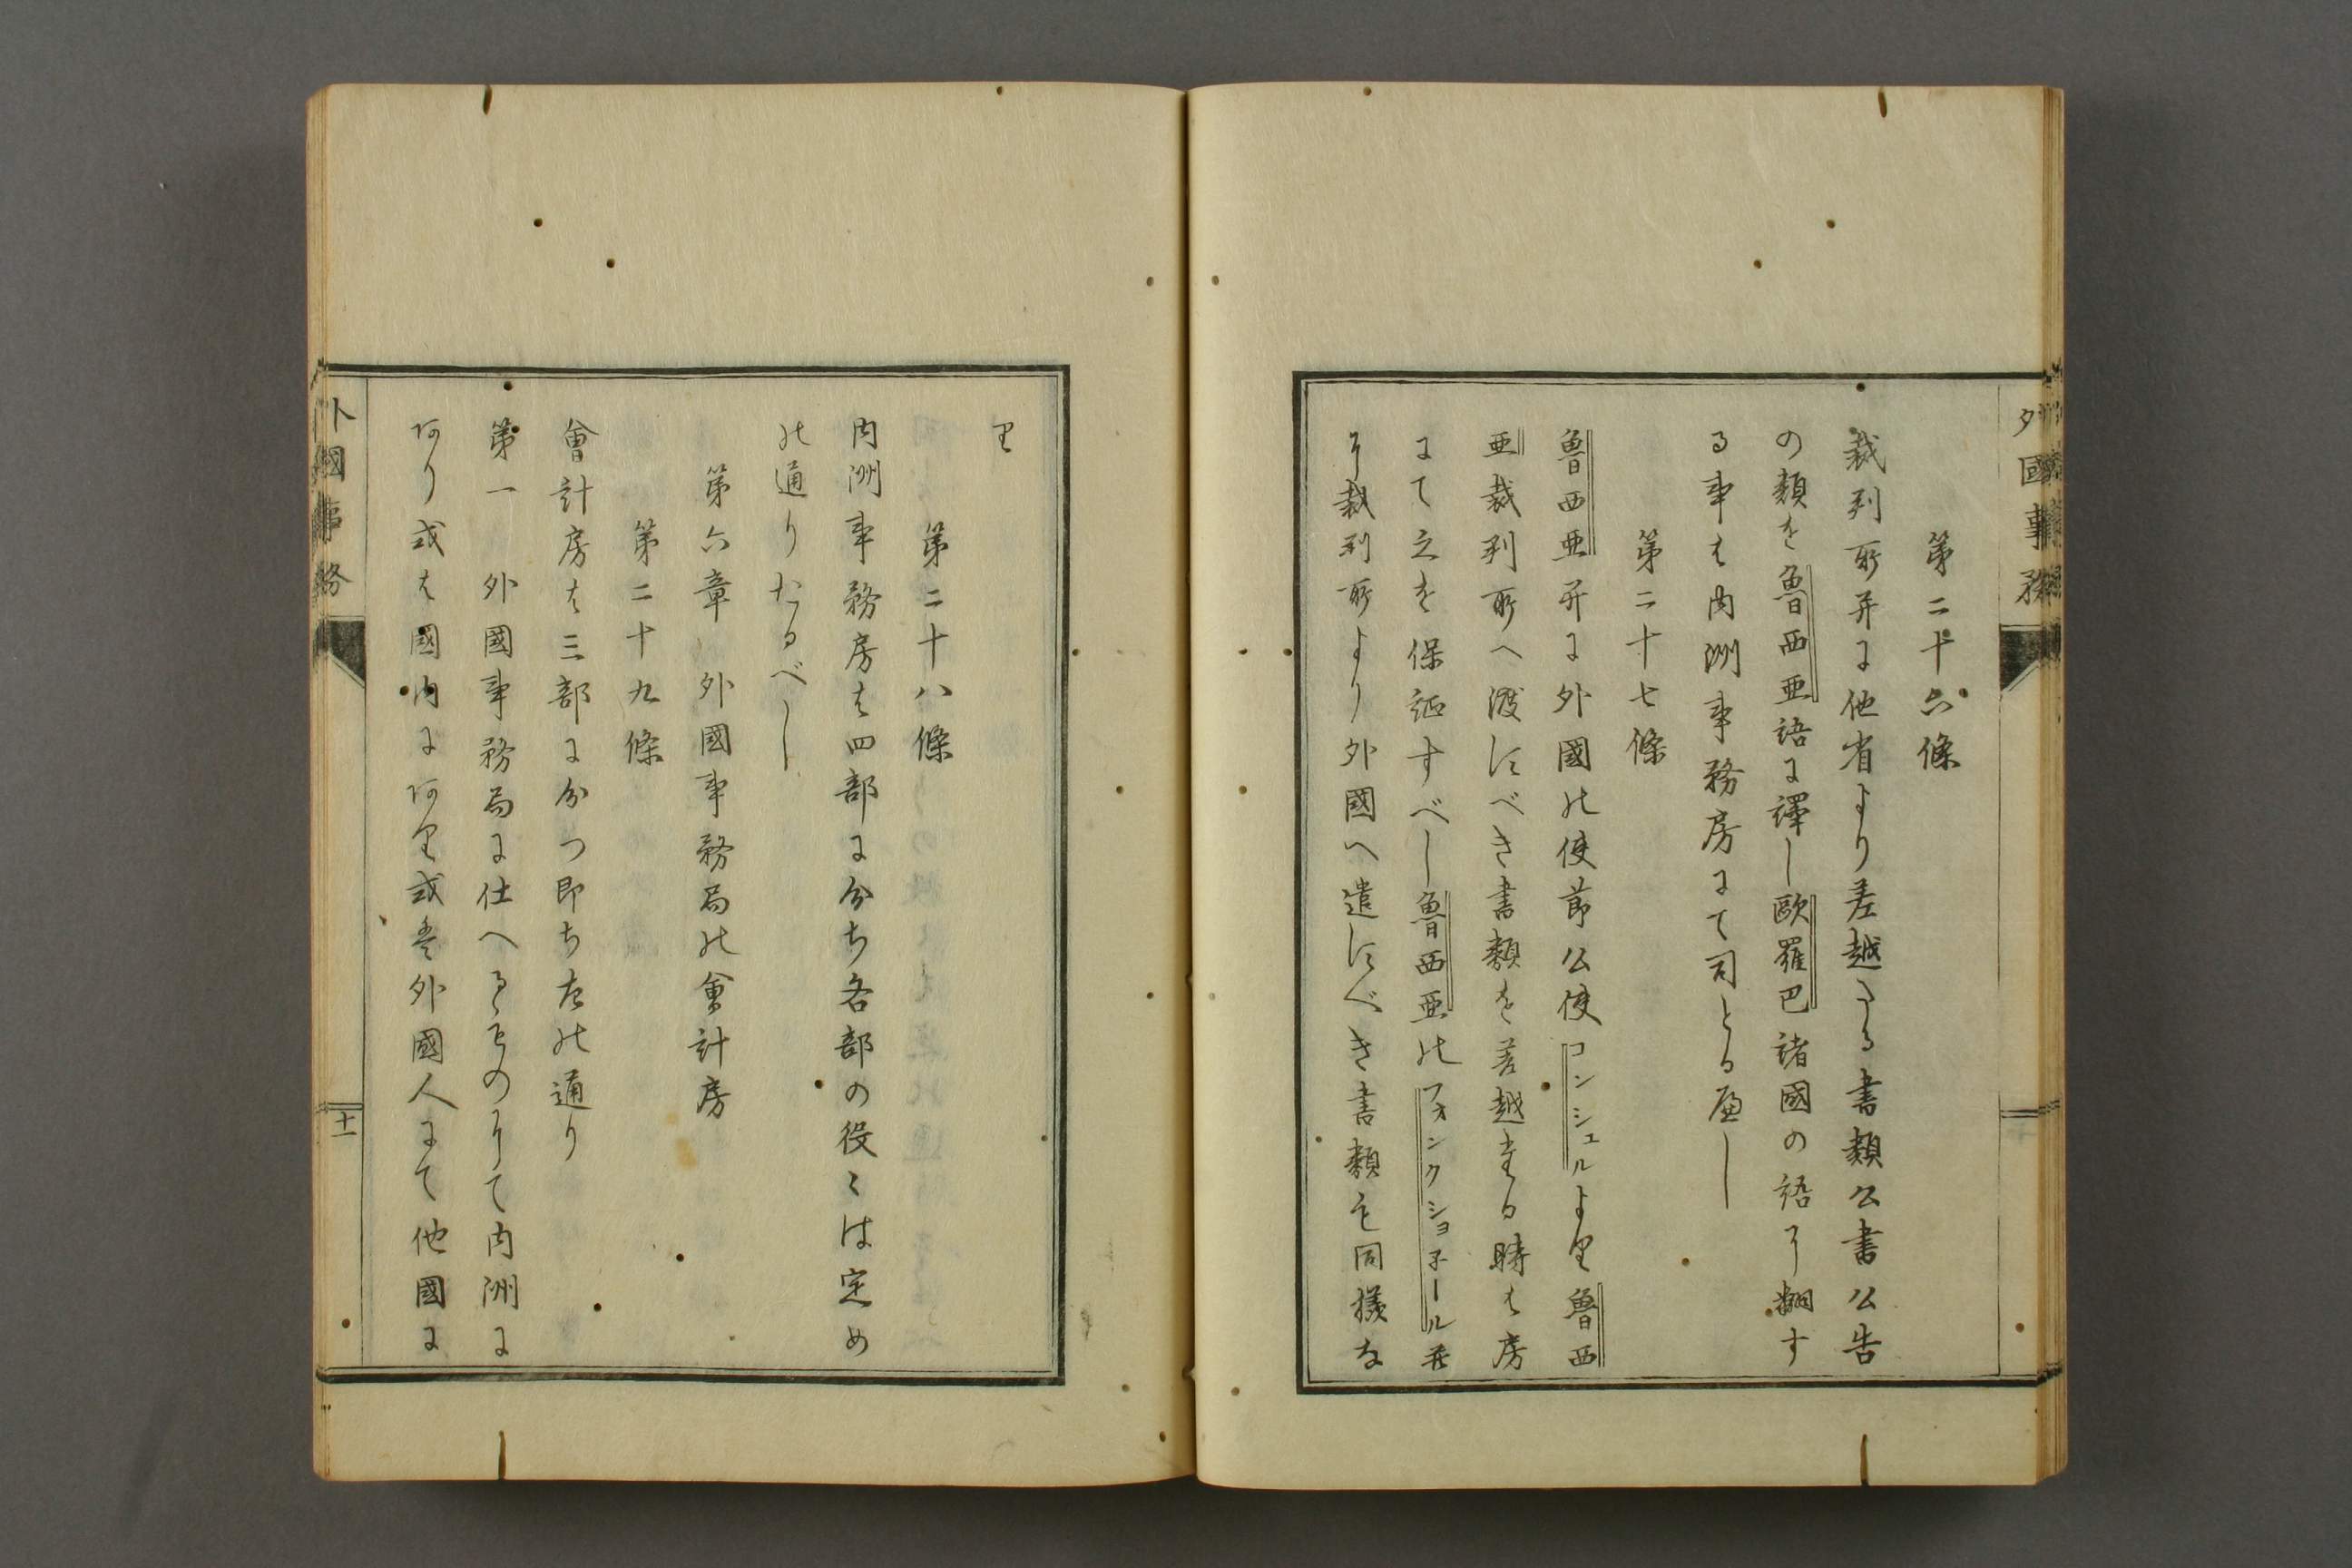 外國事務
第二十六條
裁判所并に他省より差越さる書類公書公告
の類を魯西亜語に譯し歐羅巴諸國の語に翻す
る事は内洲事務房にて司とる可し
第二十七條
魯西亜并に外國の使節公使コンシュルより魯西
亜裁判所へ渡すべき書類を差越たる時は房
にて之を保証すべし魯西亜のフォンクショ子ール并
に裁判所より外國へ遣すべき書類も同様な
り
第二十八條
内洲事務房は四部に分ち各部の役々は定め
の通りたるべし
第六章 外國事務局の會計房
第二十九條
會計房は三部に分つ即ち左の通り
第一 外國事務局に仕へるものにて内洲に
あり或は國内にあり或は外國人にて他國に
外國事務
十一